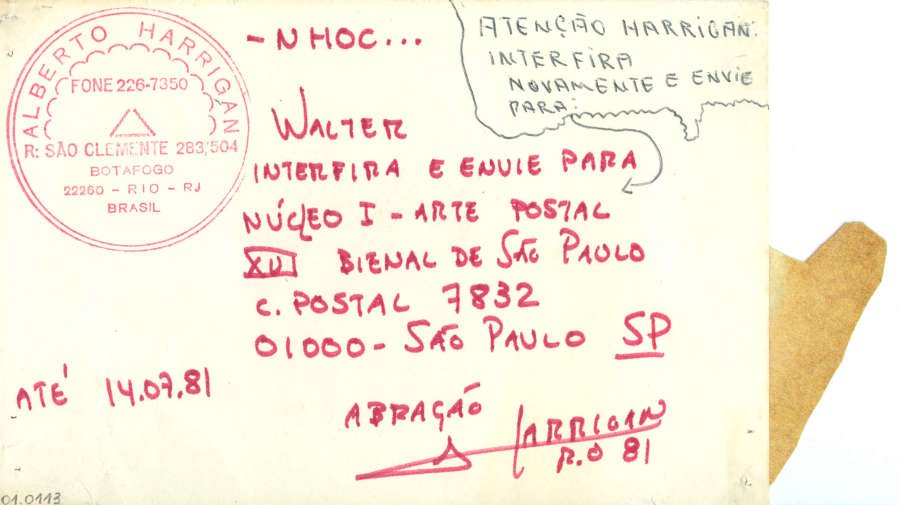 ALBERTO HARRIGAN
FONE 226-7350
R: SÃO CLEMENTE 283/504
BOTAFOGO
22260 - RIO - RJ
BRASIL
- NHOC...
ATENÇÃO HARRIGAN:
INTERFIRA
NOVAMENTE E ENVIE
PARA:
WALTER
INTERFIRA E ENVIE PARA
NÚCLEO I - ARTE POSTAL
XVI BIENAL DE SÃO PAULO
C. POSTAL 7832
01000 - SÃO PAULO SP
ATÉ 14.07.81
ABRAÇÃO
HARRIGAN
R.O 81
01.0113